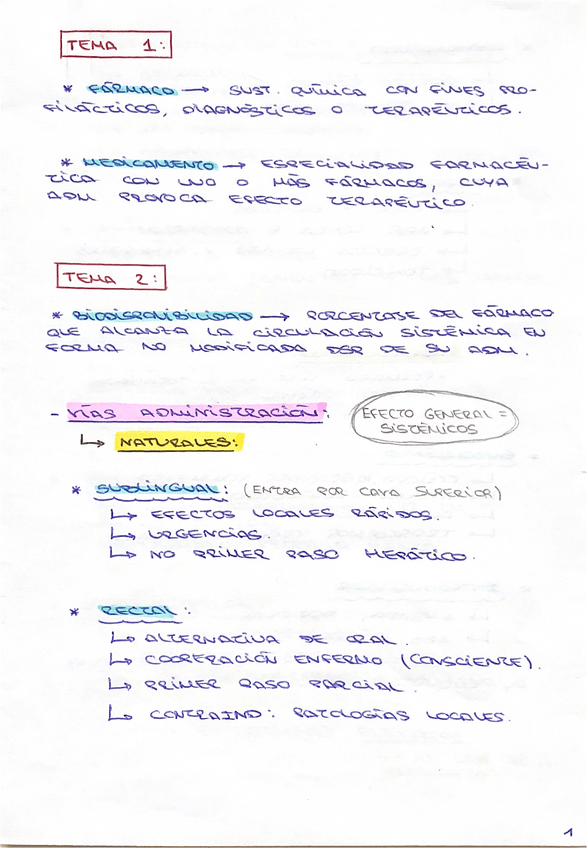 TEMA 1:
* FÁRMACO → SUST. QUÍMICA CON FINES PRO-
FILÁCTICOS, DIAGNÓSTICOS O TERAPÉUTICOS.
* MEDICAMENTO → ESPECIALIDAD FARMACÉU-
TICA CON UNO O MÁS FÁRMACOS, CUYA
ADM PROVOCA EFECTO TERAPÉUTICO.
TEMA 2:
* BIODISPONIBILIDAD → PORCENTAJE DEL FÁRMACO
QUE ALCANZA LA CIRCULACIÓN SISTÉMICA EN
FORMA NO MODIFICADA DSP DE SU ADM.
- VÍAS ADMINISTRACIÓN:
EFECTO GENERAL =
SISTÉMICOS
↳ NATURALES:
* SUBLINGUAL: (ENTRA POR CAVA SUPERIOR)
↳ EFECTOS LOCALES RÁPIDOS.
↳ URGENCIAS.
↳ NO PRIMER PASO HEPÁTICO.
* RECTAL:
↳ ALTERNATIVA DE ORAL.
↳ COOPERACIÓN ENFERMO (CONSCIENTE).
↳ PRIMER PASO PARCIAL.
↳ CONTRAIND: PATOLOGÍAS LOCALES.
1